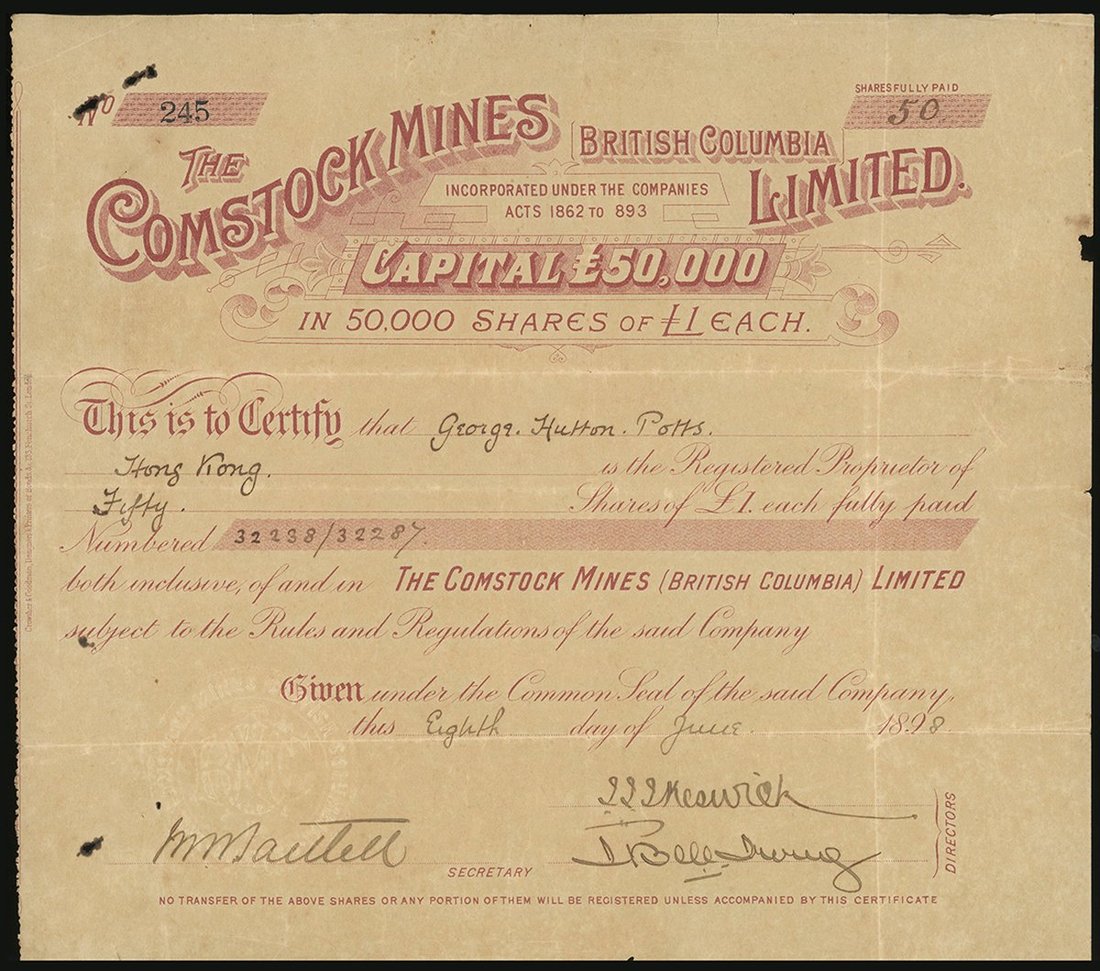 No 245
SHARES FULLY PAID
50
THE COMSTOCK MINES BRITISH COLUMBIA LIMITED.
INCORPORATED UNDER THE COMPANIES
ACTS 1862 TO 893
CAPITAL £50,000
IN 50,000 SHARES OF £1 EACH.
This is to Certify that George. Hutton. Potts.
Hong Kong. is the Registered Proprietor of
Fifty. Shares of £1. each fully paid
Numbered 32238/32287.
both inclusive, of and in THE COMSTOCK MINES (BRITISH COLUMBIA) LIMITED
subject to the Rules and Regulations of the said Company
Given under the Common Seal of the said Company,
this Eighth day of June. 1898.
Keswick
D Bell-Irving
DIRECTORS
Bartlett
SECRETARY
NO TRANSFER OF THE ABOVE SHARES OR ANY PORTION OF THEM WILL BE REGISTERED UNLESS ACCOMPANIED BY THIS CERTIFICATE